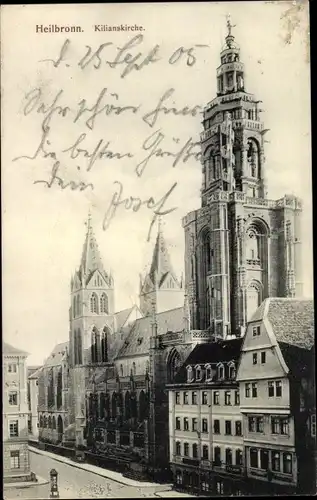 Heilbronn. Kilianskirche.
d. 25 Sept 05
Sehr schön hier
die besten Grüße
dein Josef